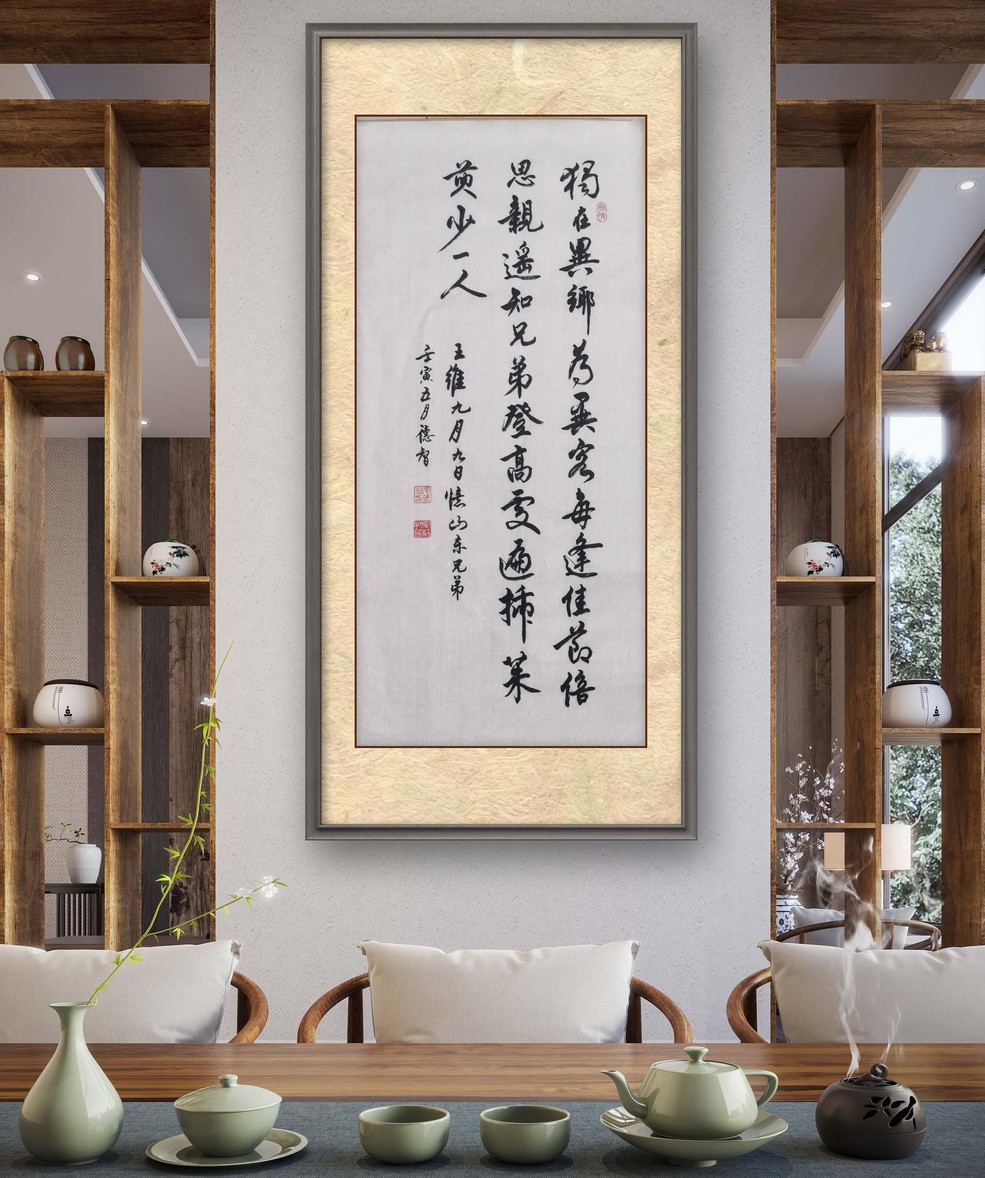 獨在異鄉為異客每逢佳節倍
思親遙知兄弟登高處遍插茱
萸少一人
王維九月九日憶山東兄弟
壬寅五月德智